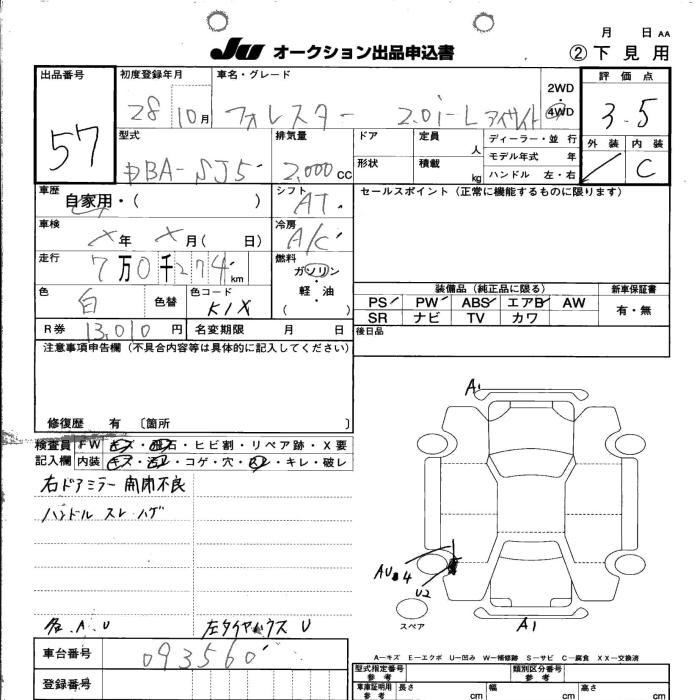 月 日 AA
JU オークション出品申込書 ②下見用
出品番号 57
初度登録年月 28 10月
車名・グレード フォレスター 2.0i-L アイサイト
2WD・4WD
評価点 3.5
外装 内装 C
型式 DBA-SJ5
排気量 2,000 CC
ドア 定員 人
形状 積載 kg
ディーラー・並行
モデル年式 年
ハンドル 左・右
車歴 自家用・( )
シフト AT
セールスポイント (正常に機能するものに限ります)
車検 年 月( 日)
冷房 A/C
走行 7万0千274km
燃料 ガソリン・軽・油 ( )
色 白 色替 色コード K1X
装備品 (純正品に限る) 新車保証書
PS PW ABS エアB AW 有・無
SR ナビ TV カワ
R券 13,010円 名変期限 月 日
後日品
注意事項申告欄 (不具合内容等は具体的に記入してください)
修復歴 有 〔箇所 〕
検査員記入欄
FW キズ・飛石・ヒビ割・リペア跡・X要
内装 キズ・汚レ・コゲ・穴・スレ・キレ・破レ
右ドアミラー開閉不良
ハンドル スレ ハゲ
A1
U2
スペア
A1
A.U
U
A-キズ E-エクボ U-凹み W-補修跡 S-サビ C-腐食 XX-交換済
車台番号 093560
登録番号
型式指定番号 参考
類別区分番号 参考
車庫証明用 参考 長さ cm 幅 cm 高さ cm